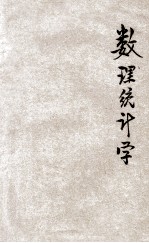 数理统计学